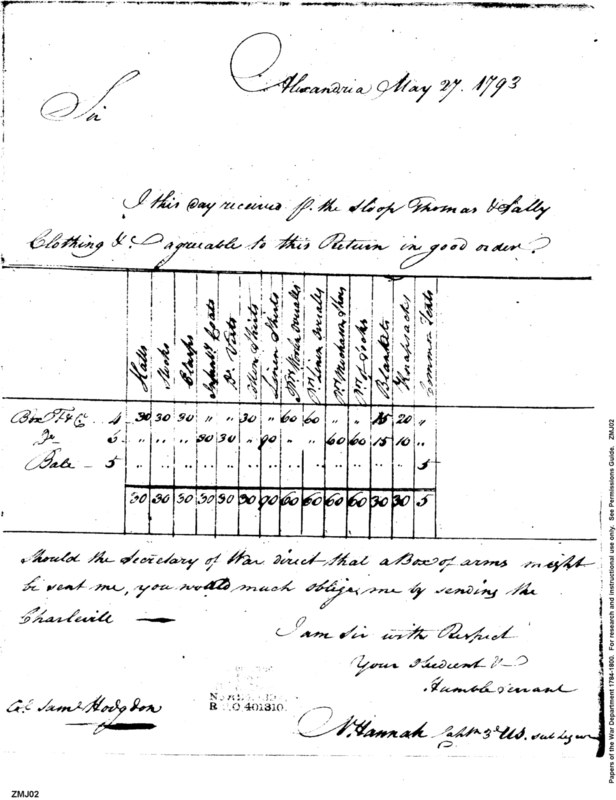 Alexandria May 27. 1793
Sir
I this day received p. the Sloop Thomas & Sally
Clothing &c. agreeable to this Return in good order.
Hatts Stocks Clasps Infantry Coats Do. Vests Linen Shirts prs. Woolen Overalls prs. Linen Overalls prs. Shoes prs. of Socks Blankets Knapsacks Common Tents
Box 4 30 30 30 " " 30 " 60 60 " " 15 20 "
Do " " " 30 30 " 90 " " 60 60 15 10 "
Bale - 5 " " " " " " " " " " " " " 5
30 30 30 30 30 30 90 60 60 60 60 30 30 5
Should the Secretary of War direct that a Box of arms might
be sent me, you would much oblige me by sending the
Charleville —
I am Sir with Respect
Your Obedient &
Humble Servant
Saml Hodgdon
N. Hannah Captn 3d US. Sub Legion
401310
Papers of the War Department 1784-1800. For research and instructional use only. See Permissions Guide. ZMJ02
ZMJ02